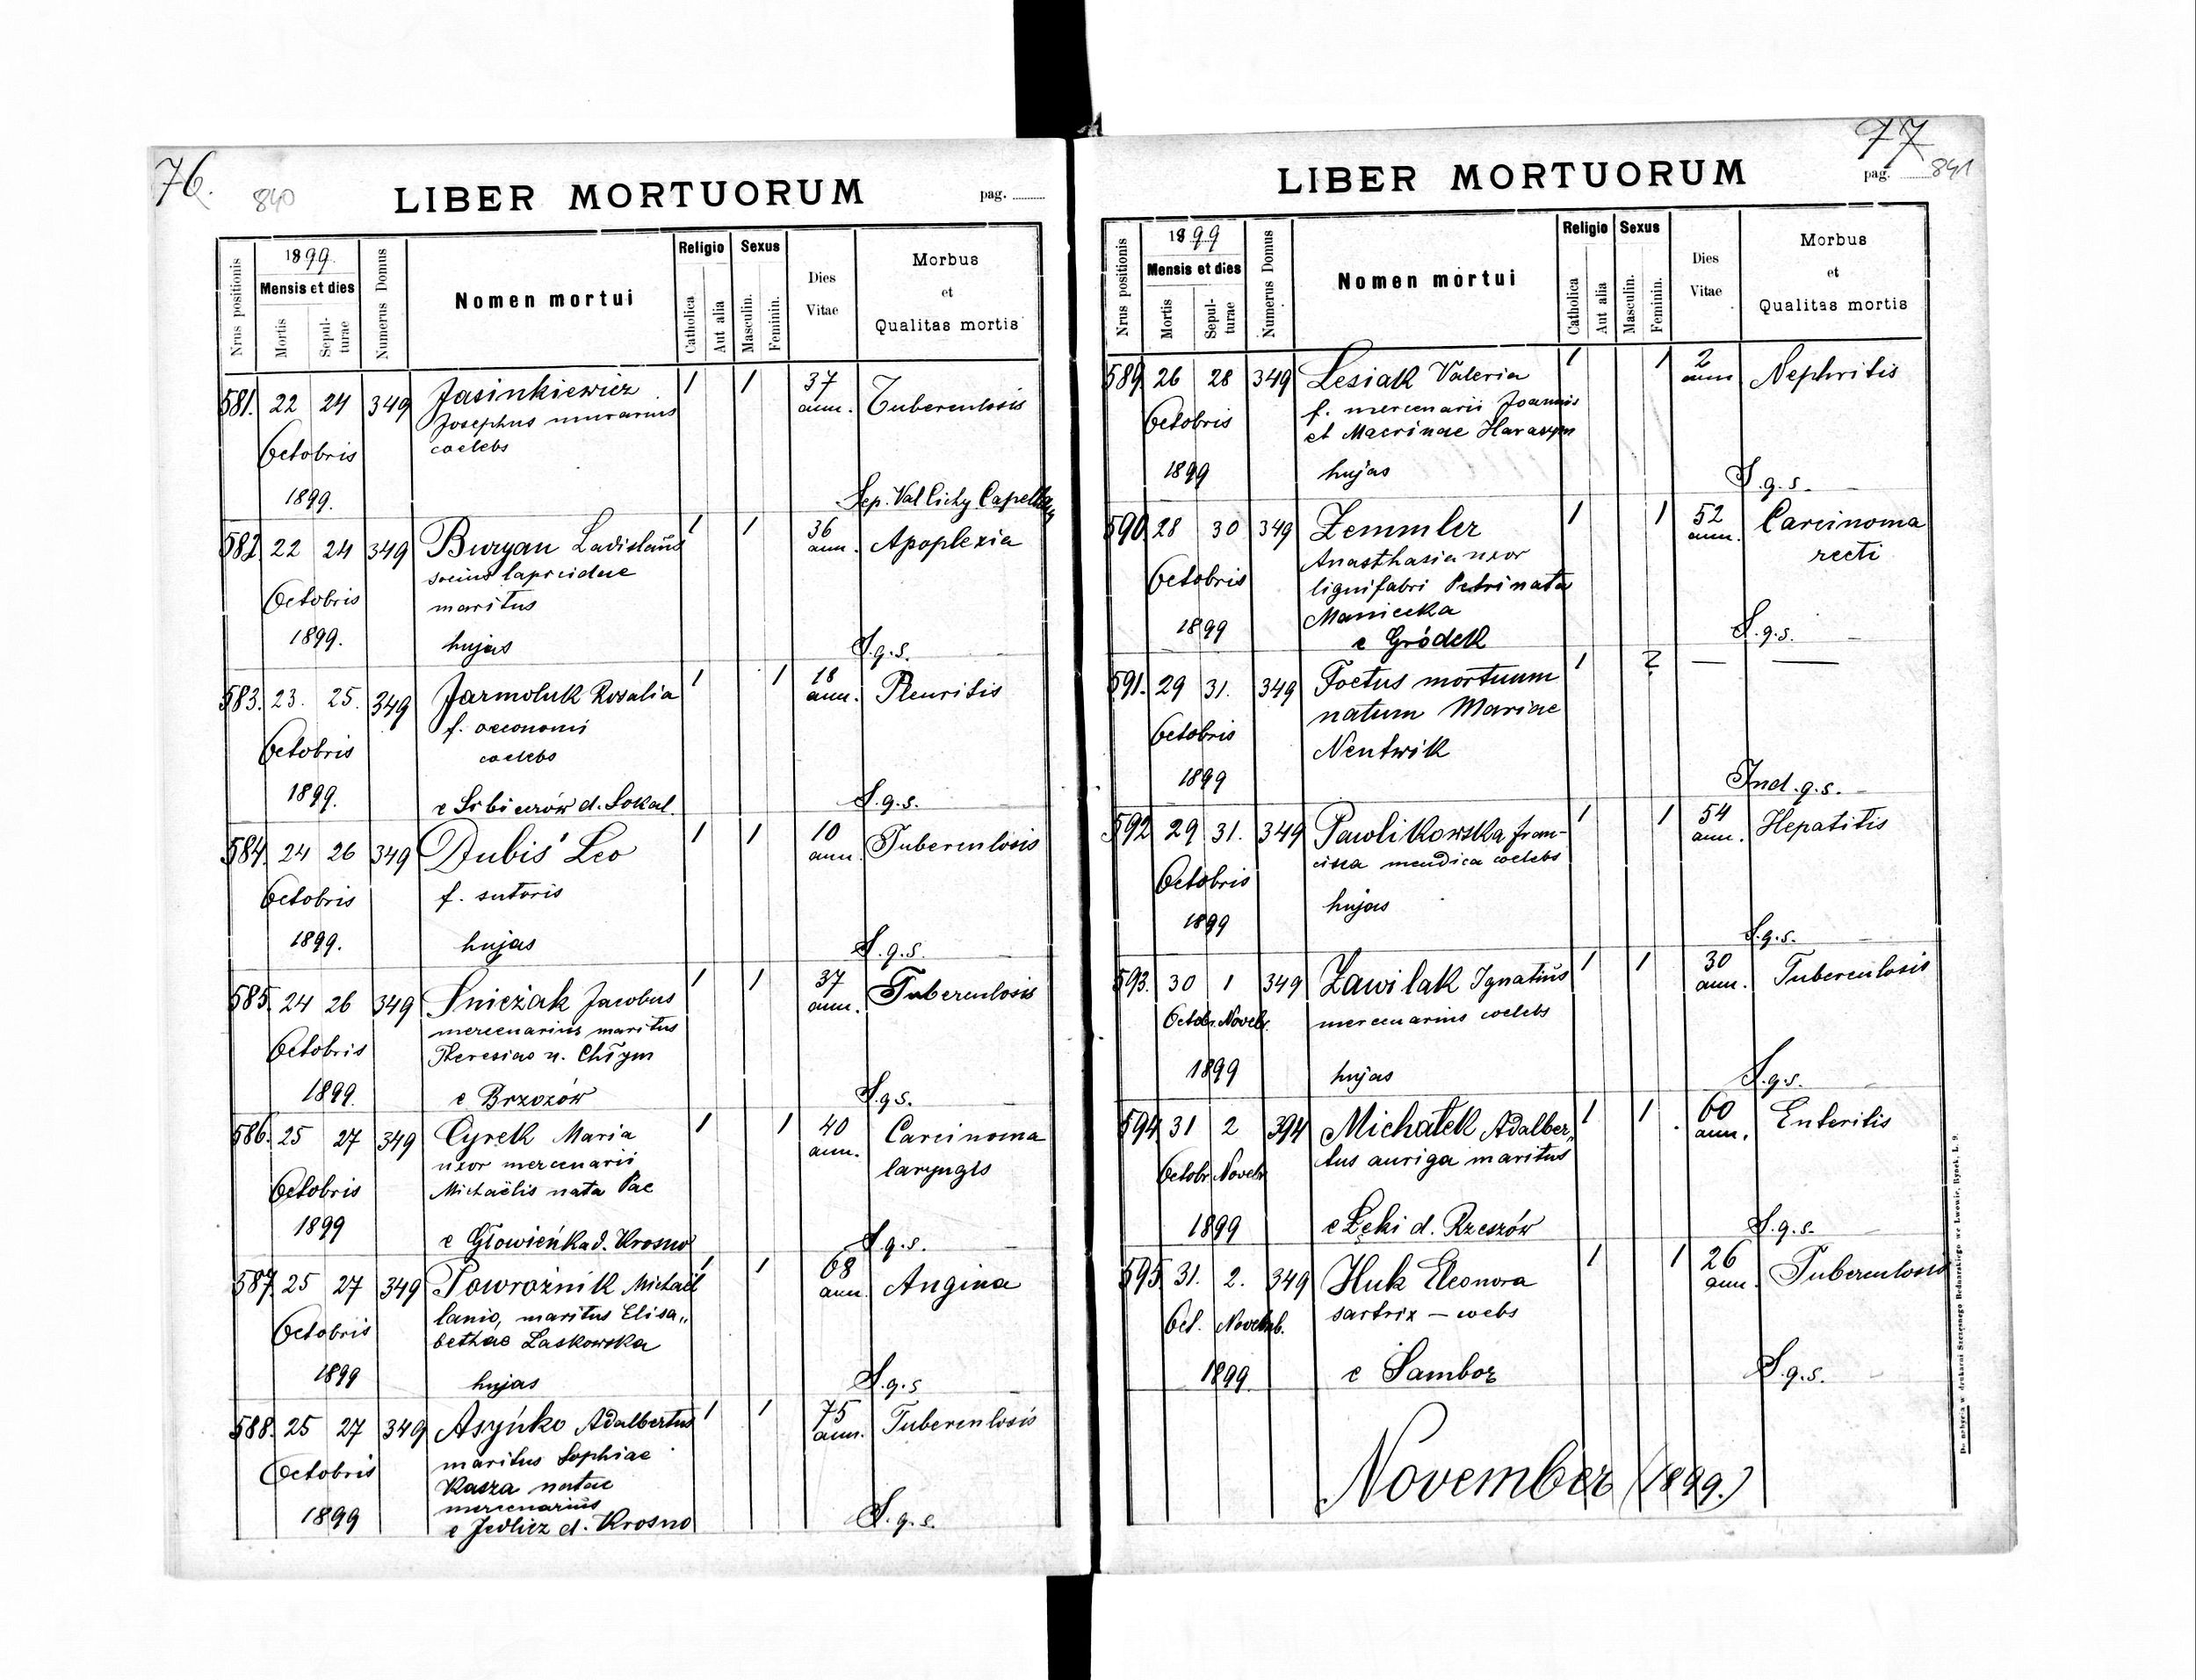 76.
840
LIBER MORTUORUM
pag.
Nrus positionis
1899.
Mensis et dies
Mortis
Sepulturae
Numerus Domus
Nomen mortui
Religio
Catholica
Aut alia
Sexus
Masculin.
Feminin.
Dies
Vitae
Morbus
et
Qualitas mortis
581. 22 24 349 Jasinkiewicz 1 1 37 ann. Tuberculosis
Josephus murarius
coelebs
Octobris
1899.
Sep. Val Cichy Capellan
582. 22 24 349 Buryan Ladislaus 1 1 36 ann. Apoplexia
socius lapicidae
Octobris maritus
1899. hujas S.g.s.
583. 23. 25. 349 Jarmoluk Rosalia 1 1 18 ann. Pleuritis
f. oeconomi
Octobris coelebs
1899. e d. Sokal. S.g.s.
584. 24 26 349 Dubis Leo 1 1 10 ann. Tuberculosis
Octobris f. sutoris
1899. hujas S.g.s.
585. 24 26 349 Śnieżak Jacobus 1 1 37 ann. Tuberculosis
mercenarius maritus
Octobris Theresiae n. Chłym
1899. e Brzozów S.g.s.
586. 25 27 349 Cyrek Maria 1 1 40 ann. Carcinoma
uxor mercenarii laryngis
Octobris Michaëlis nata Pac
1899 e Głowieńka d. Krosno S.g.s.
587. 25 27 349 Powroźnik Michaël 1 1 68 ann. Angina
lanio, maritus Elisa„
Octobris bethae Laskowska
1899 hujas S.g.s
588. 25 27 349 Asyńko Adalbertus 1 1 75 ann. Tuberculosis
maritus Sophiae
Octobris Kasza natae
mercenarius
1899 e Jedlicz d. Krosno S.g.s.
77
841
LIBER MORTUORUM
pag.
Nrus positionis
1899
Mensis et dies
Mortis
Sepulturae
Numerus Domus
Nomen mortui
Religio
Catholica
Aut alia
Sexus
Masculin.
Feminin.
Dies
Vitae
Morbus
et
Qualitas mortis
589 26 28 349 Lesiak Valeria 1 1 2 ann Nephritis
f. mercenarii Joannis
Octobris et Macrinae Harasym
1899 hujas S.g.s.
590. 28 30 349 Zemmler 1 1 52 ann. Carcinoma
Anasthasia uxor recti
Octobris lignifabri Petri nata
Maniecka
1899 e Gródek S.g.s.
591. 29 31. 349 Foetus mortuum 1 ? — —
natum Mariae
Octobris Nentwik
1899 Ind.g.s.
592 29 31. 349 Pawlikowska Fran-
cisca mendica coelebs 1 1 54 ann. Hepatitis
Octobris
hujas
1899 S.g.s.
593. 30 1 349 Zawilak Ignatius 1 1 30 ann. Tuberculosis
Octobr. Novebr. mercenarius coelebs
1899 hujas S.g.s.
594 31 2 394 Michałek Adalber„ 1 1 60 ann. Enteritis
tus auriga maritus
Octobr Novebr
1899 e Łęki d. Rzeszów S.g.s.
595. 31. 2. 349 Huk Eleonora 1 1 26 ann. Tuberculosis
sartrix — coebs
Oct. Novemb.
1899. e Sambor S.g.s.
November (1899.)
Do nabycia w drukarni Szczęsnego Bednarskiego we Lwowie, Rynek, L. 9.